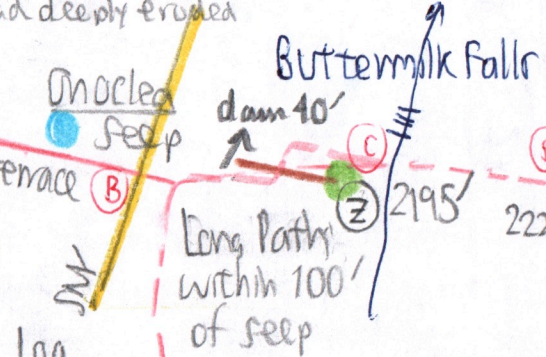 nd deeply eroded
Buttermilk Falls
Onoclea
seep
dam 40'
C
errace
B
Z
2195'
222
Long Path
within 100'
of seep
log